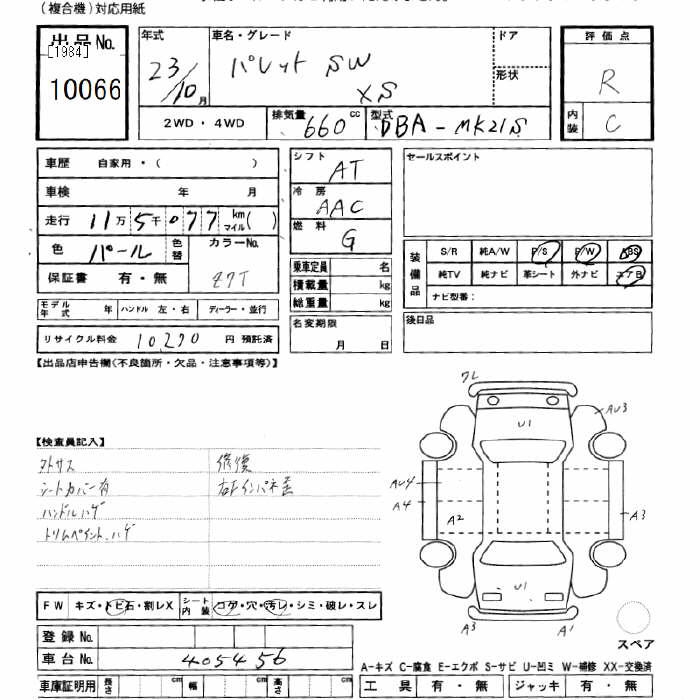 (複合機)対応用紙
出品No.
[1984]
10066
年式
23/10月
車名・グレード
パレット SW
XS
ドア
形状
評価点
R
内装
C
2WD・4WD
排気量
660cc
型式
DBA-MK21S
車歴 自家用・( )
車検 年 月
走行 11万5千077km マイル( )
色 パール 色替
カラーNo.
Z7T
保証書 有・無
モデル年式 年 ハンドル 左・右 ディーラー・並行
リサイクル料金 10,290 円 預託済
シフト
AT
冷房
AAC
燃料
G
乗車定員 名
積載量 kg
総重量 kg
名変期限
月 日
セールスポイント
装備品
S/R 純A/W P/S P/W ABS
純TV 純ナビ 革シート 外ナビ エアB
ナビ型番:
後日品
【出品店申告欄(不良箇所・欠品・注意事項等)】
【検査員記入】
外サス
シートカバー有
ハンドルハゲ
トリムペイント、ハゲ
修復
右Fインパネ歪
ワレ
U1
AU3
AU4
A4
A2
A3
U1
A3
A1
スペア
FW キズ・トビ石・割レX
シート内装 コゲ・穴・汚レ・シミ・破レ・スレ
登録No.
車台No. 405456
A-キズ C-腐食 E-エクボ S-サビ U-凹ミ W-補修 XX-交換済
車庫証明用 長さ cm 幅 cm 高さ cm
工具 有・無 ジャッキ 有・無